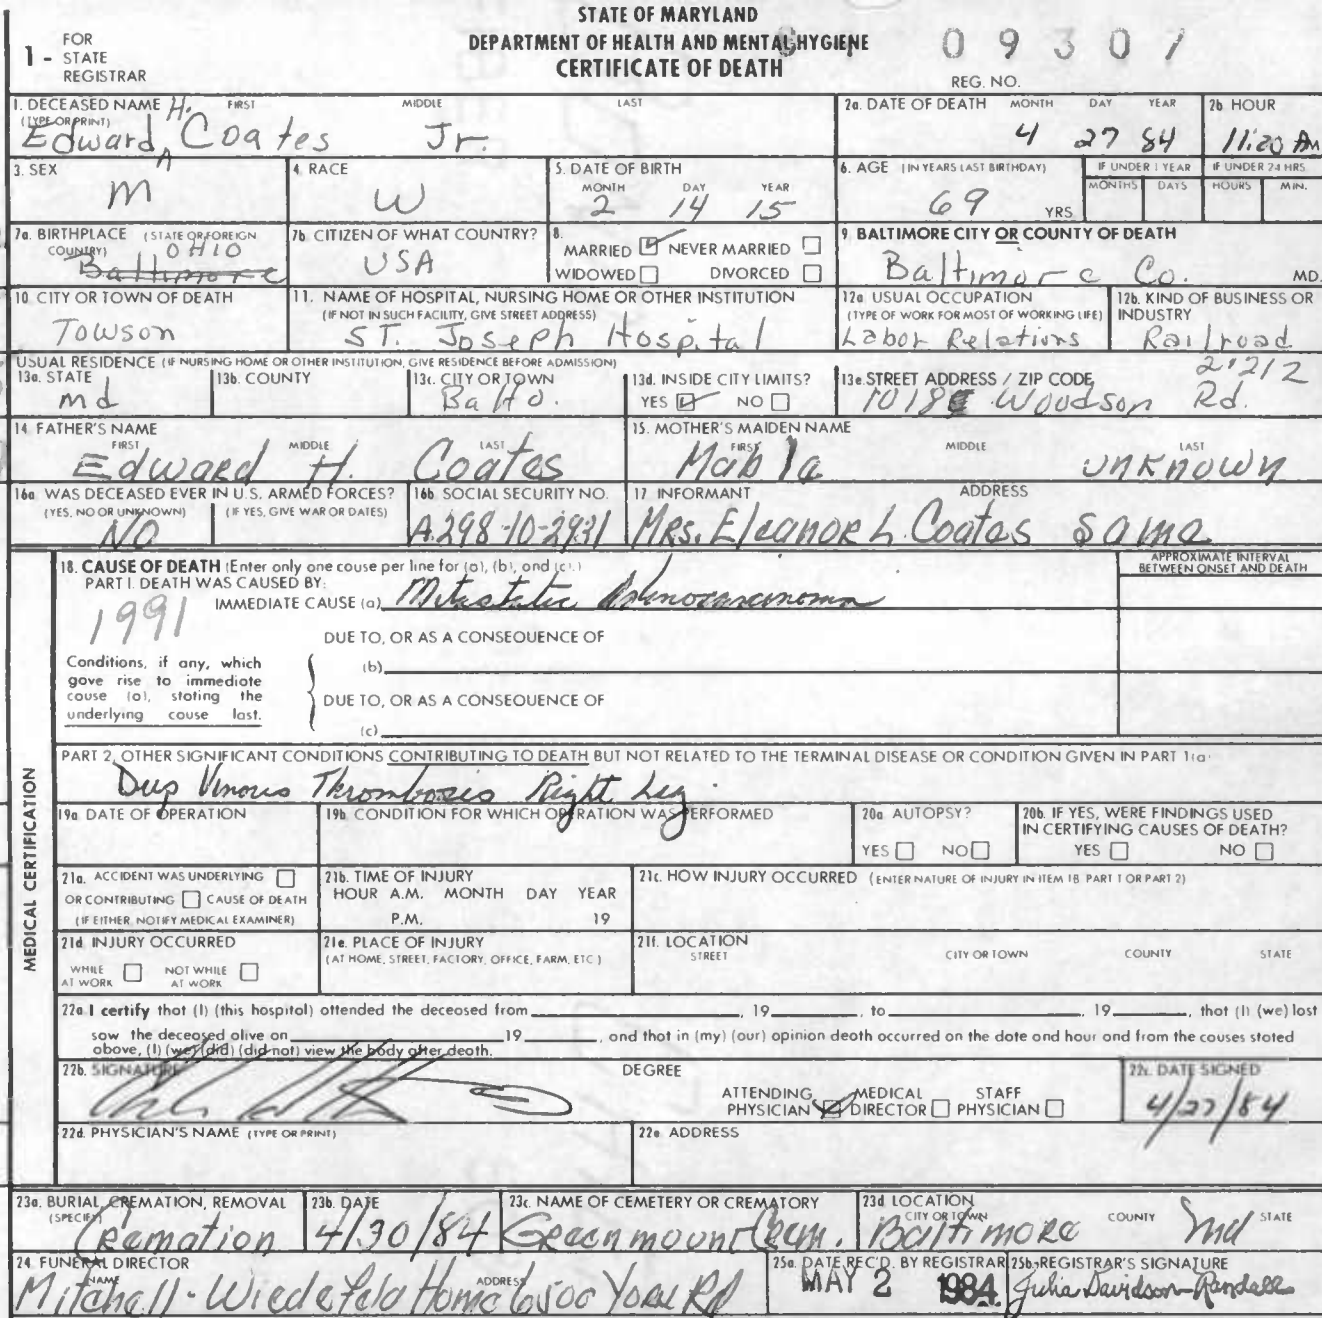 STATE OF MARYLAND
DEPARTMENT OF HEALTH AND MENTAL HYGIENE
CERTIFICATE OF DEATH
1 - FOR STATE REGISTRAR
09307
REG. NO.
1. DECEASED NAME FIRST MIDDLE LAST
(TYPE OR PRINT)
Edward H. Coates Jr.
2a. DATE OF DEATH MONTH DAY YEAR
4 27 84
2b HOUR
11:20 AM
3. SEX
M
4. RACE
W
5. DATE OF BIRTH
MONTH DAY YEAR
2 14 15
6. AGE (IN YEARS LAST BIRTHDAY)
69 YRS
IF UNDER 1 YEAR
MONTHS DAYS
IF UNDER 24 HRS
HOURS MIN.
7a. BIRTHPLACE (STATE OR FOREIGN COUNTRY)
OHIO
Baltimore
7b. CITIZEN OF WHAT COUNTRY?
USA
8.
MARRIED NEVER MARRIED
WIDOWED DIVORCED
9. BALTIMORE CITY OR COUNTY OF DEATH
Baltimore Co. MD.
10. CITY OR TOWN OF DEATH
Towson
11. NAME OF HOSPITAL, NURSING HOME OR OTHER INSTITUTION
(IF NOT IN SUCH FACILITY, GIVE STREET ADDRESS)
ST. Joseph Hospital
12a. USUAL OCCUPATION
(TYPE OF WORK FOR MOST OF WORKING LIFE)
Labor Relations
12b. KIND OF BUSINESS OR INDUSTRY
Railroad
USUAL RESIDENCE (IF NURSING HOME OR OTHER INSTITUTION, GIVE RESIDENCE BEFORE ADMISSION)
13a. STATE
Md
13b. COUNTY
13c. CITY OR TOWN
Balto.
13d. INSIDE CITY LIMITS?
YES NO
13e. STREET ADDRESS / ZIP CODE
21212
1018 Woodson Rd.
14. FATHER'S NAME
FIRST MIDDLE LAST
Edward H. Coates
15. MOTHER'S MAIDEN NAME
FIRST MIDDLE LAST
Mabla unknown
16a WAS DECEASED EVER IN U.S. ARMED FORCES?
(YES, NO OR UNKNOWN) (IF YES, GIVE WAR OR DATES)
NO
16b SOCIAL SECURITY NO.
A.298-10-2931
17. INFORMANT ADDRESS
Mrs. Eleanor L. Coates Same
MEDICAL CERTIFICATION
18. CAUSE OF DEATH (Enter only one cause per line for (a), (b), and (c).)
APPROXIMATE INTERVAL BETWEEN ONSET AND DEATH
PART I. DEATH WAS CAUSED BY:
IMMEDIATE CAUSE (a) Metastatic Adenocarcinoma
1991
DUE TO, OR AS A CONSEQUENCE OF
Conditions, if any, which gave rise to immediate cause (a), stating the underlying cause last.
(b)
DUE TO, OR AS A CONSEQUENCE OF
(c)
PART 2. OTHER SIGNIFICANT CONDITIONS CONTRIBUTING TO DEATH BUT NOT RELATED TO THE TERMINAL DISEASE OR CONDITION GIVEN IN PART 1(a)
Deep Venous Thrombosis Right Leg.
19a DATE OF OPERATION
19b CONDITION FOR WHICH OPERATION WAS PERFORMED
20a AUTOPSY?
YES NO
20b. IF YES, WERE FINDINGS USED IN CERTIFYING CAUSES OF DEATH?
YES NO
21a. ACCIDENT WAS UNDERLYING
OR CONTRIBUTING CAUSE OF DEATH
(IF EITHER, NOTIFY MEDICAL EXAMINER)
21b. TIME OF INJURY
HOUR A.M. MONTH DAY YEAR
P.M. 19
21c. HOW INJURY OCCURRED (ENTER NATURE OF INJURY IN ITEM 18 PART 1 OR PART 2)
21d INJURY OCCURRED
WHILE AT WORK NOT WHILE AT WORK
21e. PLACE OF INJURY
(AT HOME, STREET, FACTORY, OFFICE, FARM, ETC.)
21f. LOCATION
STREET CITY OR TOWN COUNTY STATE
22a I certify that (I) (this hospital) attended the deceased from , 19 , to , 19 , that (I) (we) last
saw the deceased alive on 19 , and that in (my) (our) opinion death occurred on the date and hour and from the causes stated
above, (I) (we) (did) (did not) view the body after death.
22b. SIGNATURE DEGREE
ATTENDING PHYSICIAN MEDICAL DIRECTOR STAFF PHYSICIAN
22c. DATE SIGNED
4/27/84
22d. PHYSICIAN'S NAME (TYPE OR PRINT)
22e. ADDRESS
23a. BURIAL, CREMATION, REMOVAL
(SPECIFY)
Cremation
23b. DATE
4/30/84
23c. NAME OF CEMETERY OR CREMATORY
Greenmount Cem.
23d LOCATION
CITY OR TOWN COUNTY STATE
Baltimore Md
24. FUNERAL DIRECTOR
NAME ADDRESS
Mitchell-Wiedefeld Home 6500 York Rd
25a. DATE REC'D. BY REGISTRAR
MAY 2 1984
25b. REGISTRAR'S SIGNATURE
Julia Davidson-Randall